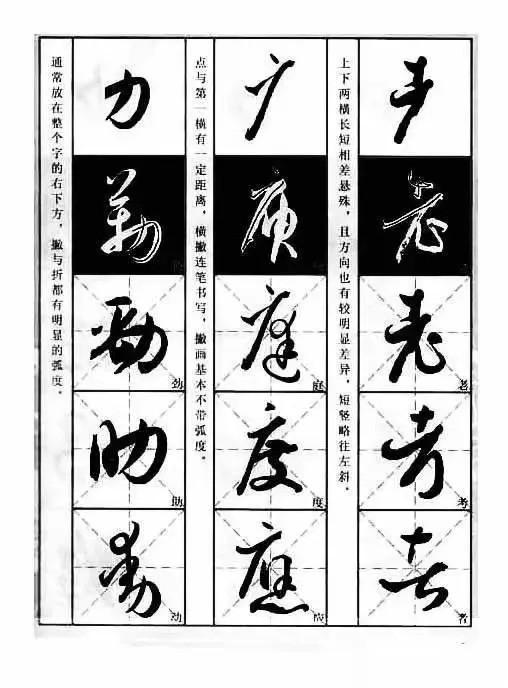 耂
老 老
考 考
者 者
上下两横长短相差悬殊，且方向也有较明显差异，短竖略往左斜。
广
庭 庭
度 度
應 应
点与第一横有一定距离，横撇连笔书写，撇画基本不带弧度。
力
勁 劲
助 助
動 动
通常放在整个字的右下方，撇与折都有明显的弧度。